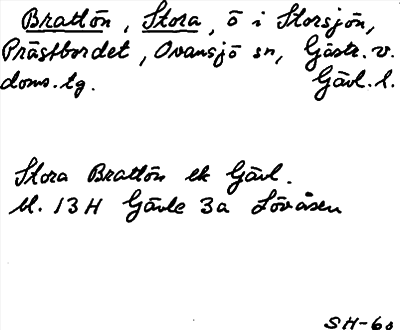 Brattön, Stora, ö i Storsjön,
Prästbordet, Ovansjö sn, Gästr. v.
doms. tg. Gävl. l.
Stora Brattön ek Gävl.
Bl. 13 H Gävle 3a Lövåsen
SH-60